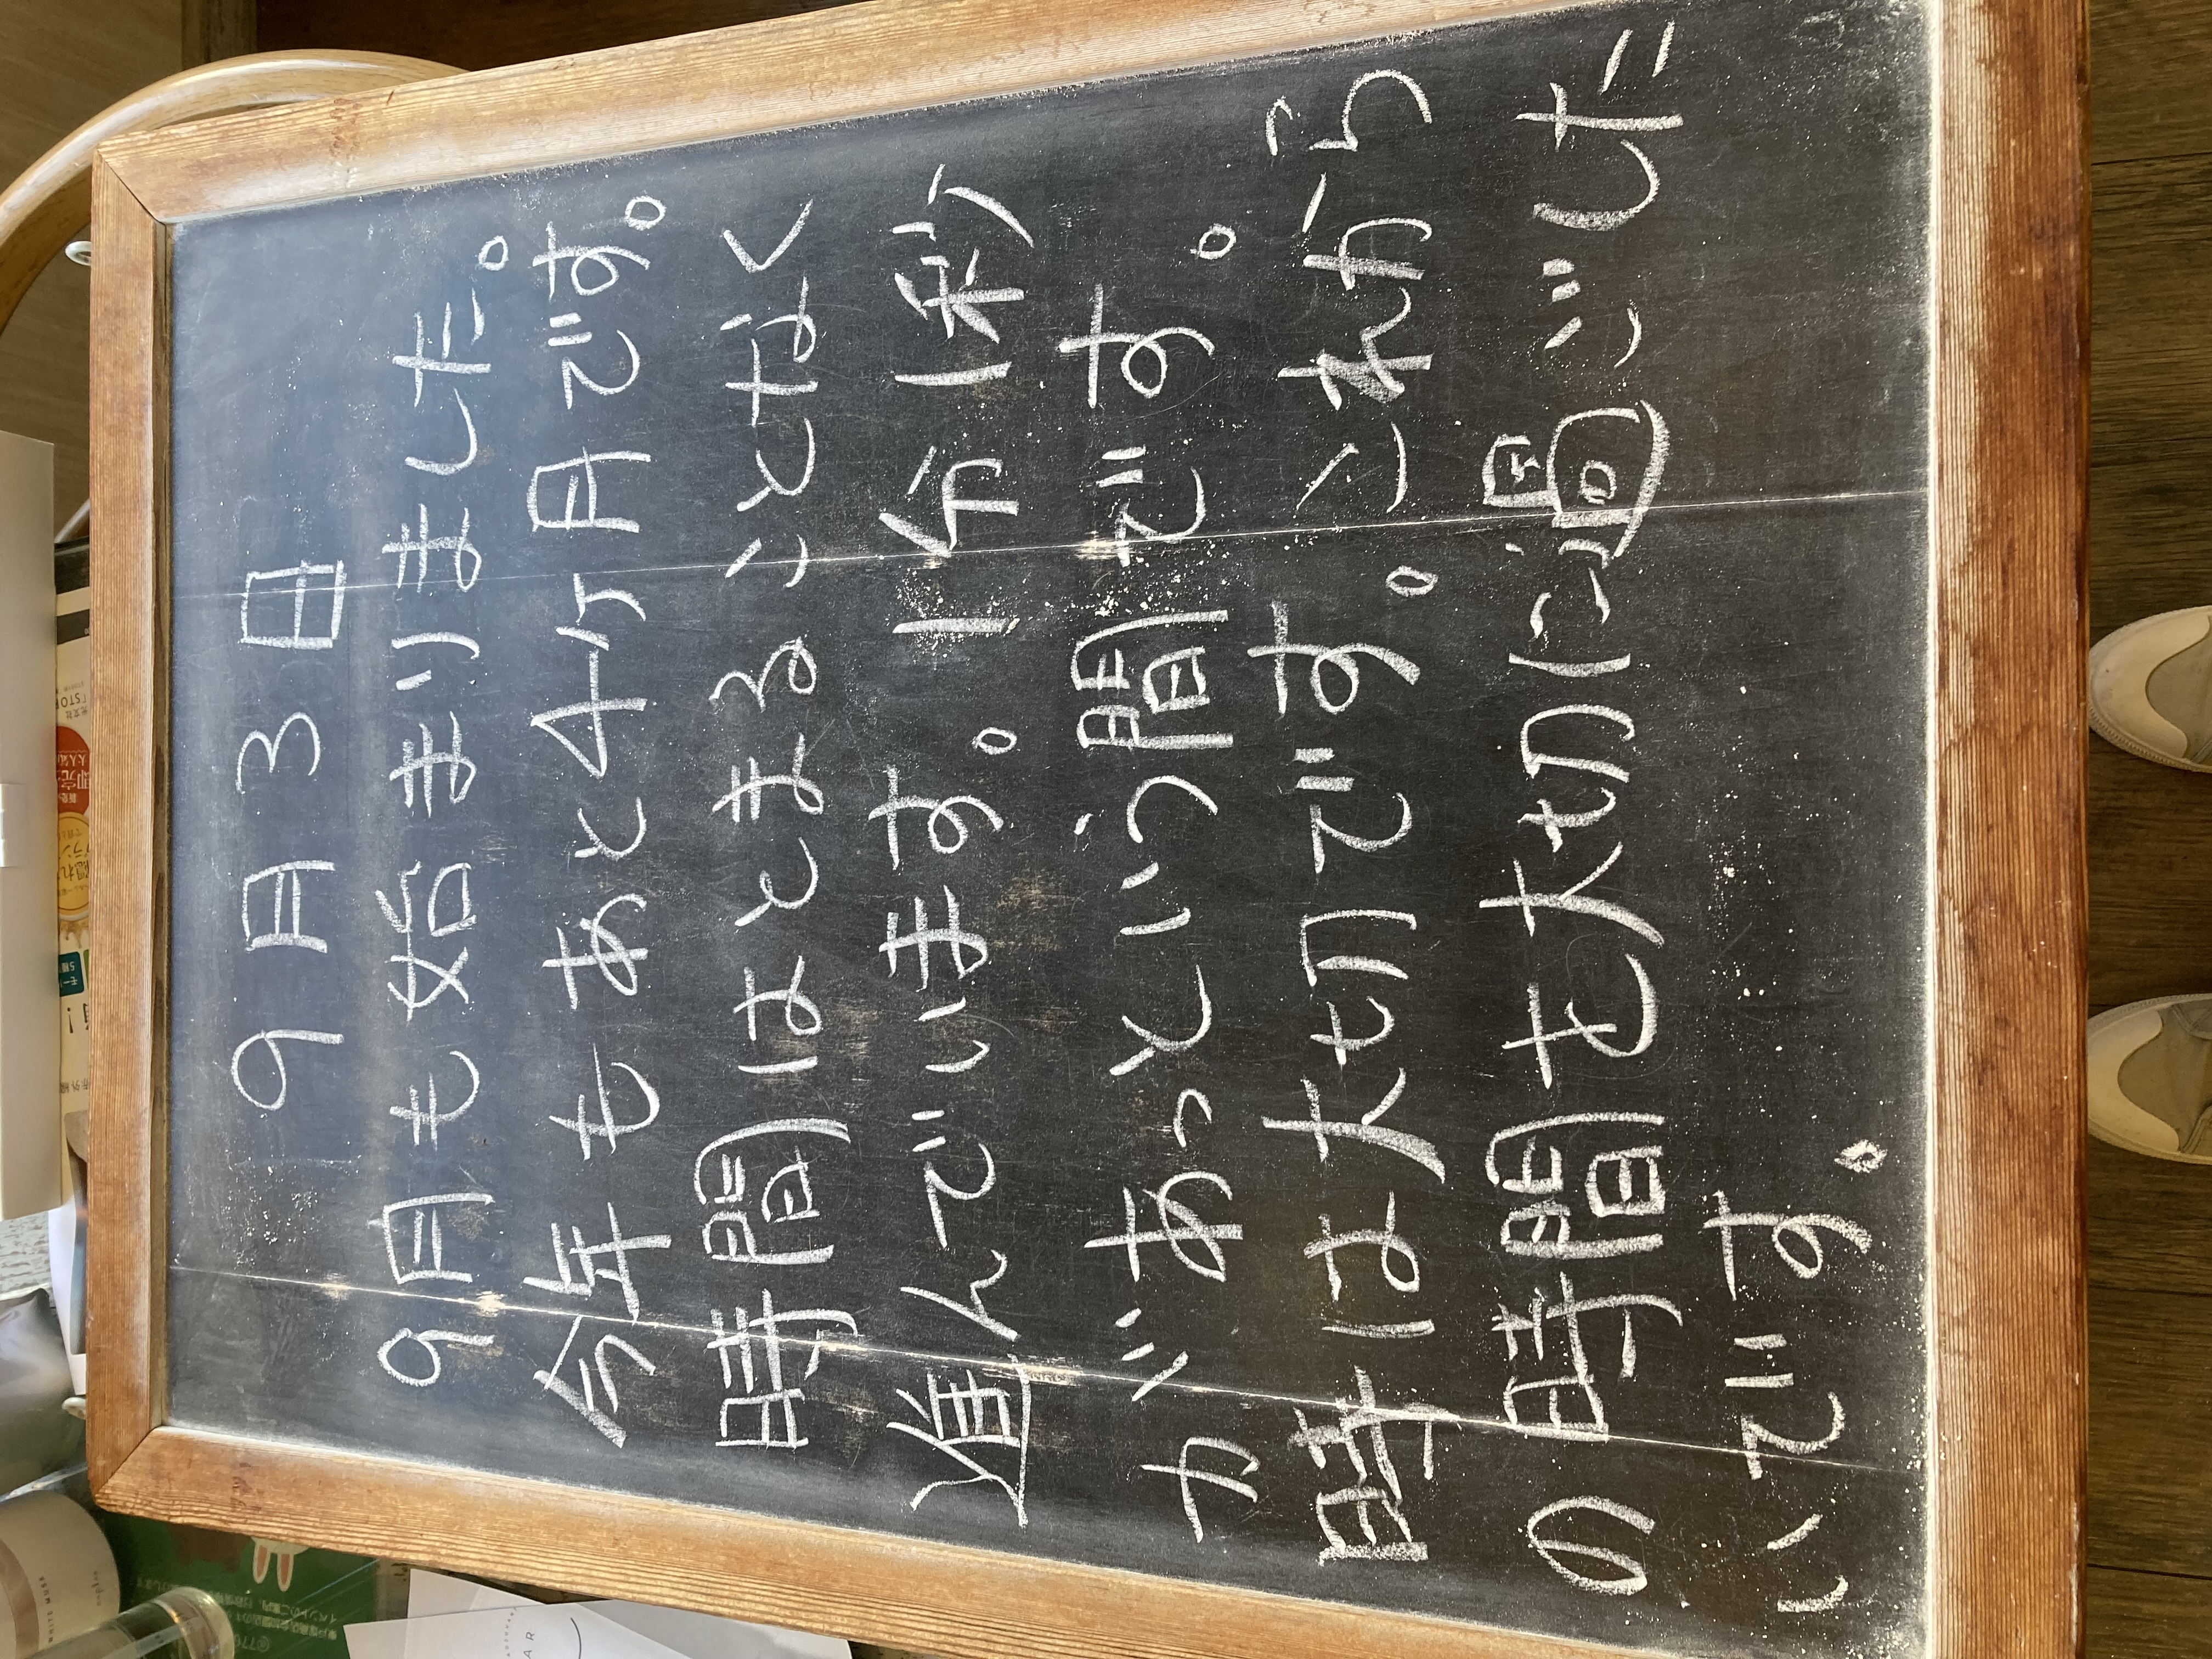 9月3日
9月も始まりました。
今年もあと4ヶ月です。
時間はとまることなく
進んでいます。1分1秒
があっという間です。
時は大切です。これから
の時間を大切に過ごした
いです。